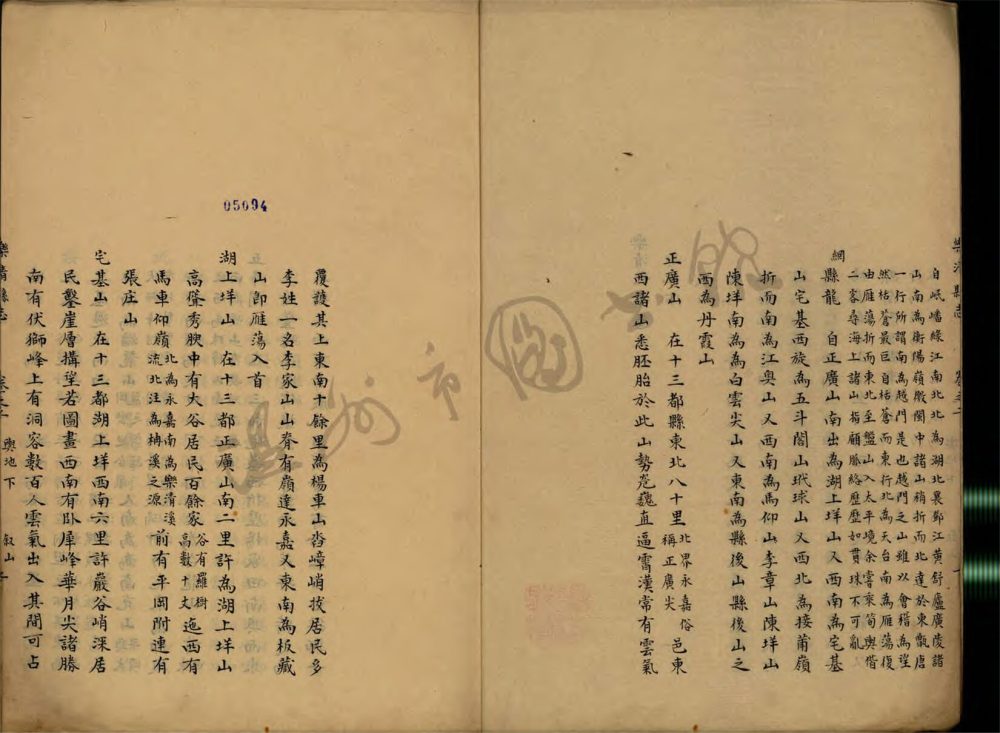 樂清縣志
自岷嶓緣江南北北為湖北襄鄂江黃舒廬廣陵諸
山南為衡陽嶺徼閩中諸山稍折而北達於東甌唐
一行所謂南為越門是也越門之山雖以會稽為望
然括蒼最巨自括蒼而東行北為天台南為雁蕩復
由雁蕩折而東北至盤山入太平境余嘗乘筍輿偕
二客尋海上諸山指顧脈絡歷歷如貫珠不可亂
網
縣龍 自正廣山南出為湖上垟山又西南為宅基
山宅基西旋為五斗閣山玳球山又西北為接莆嶺
折而南為江奧山又西南為馬仰山李章山陳垟山
陳垟南為為白雲尖山又東南為縣後山縣後山之
西為丹霞山
正廣山 在十三都縣東北八十里北界永嘉俗稱正廣尖邑東
西諸山悉胚胎於此山勢嵬巍直逼霄漢常有雲氣
05094
覆護其上東南十餘里為楊車山沓嶂峭拔居民多
李姓一名李家山山脊有嶺達永嘉又東南為板藏
山即雁蕩入首
湖上垟山 在十三都正廣山南二里許為湖上垟山
高聳秀腴中有大谷居民百餘家谷有羅樹高數十丈迤西有
馬車仰嶺北為永嘉南為樂清溪流北注為楠溪之源前有平岡附連有
張庄山
宅基山 在十三都湖上垟西南六里許巖谷峭深居
民鑿崖層搆望若圖畫西南有臥犀峰華月尖諸勝
南有伏獅峰上有洞容數百人雲氣出入其間可占
樂清縣志 輿地下 敘山